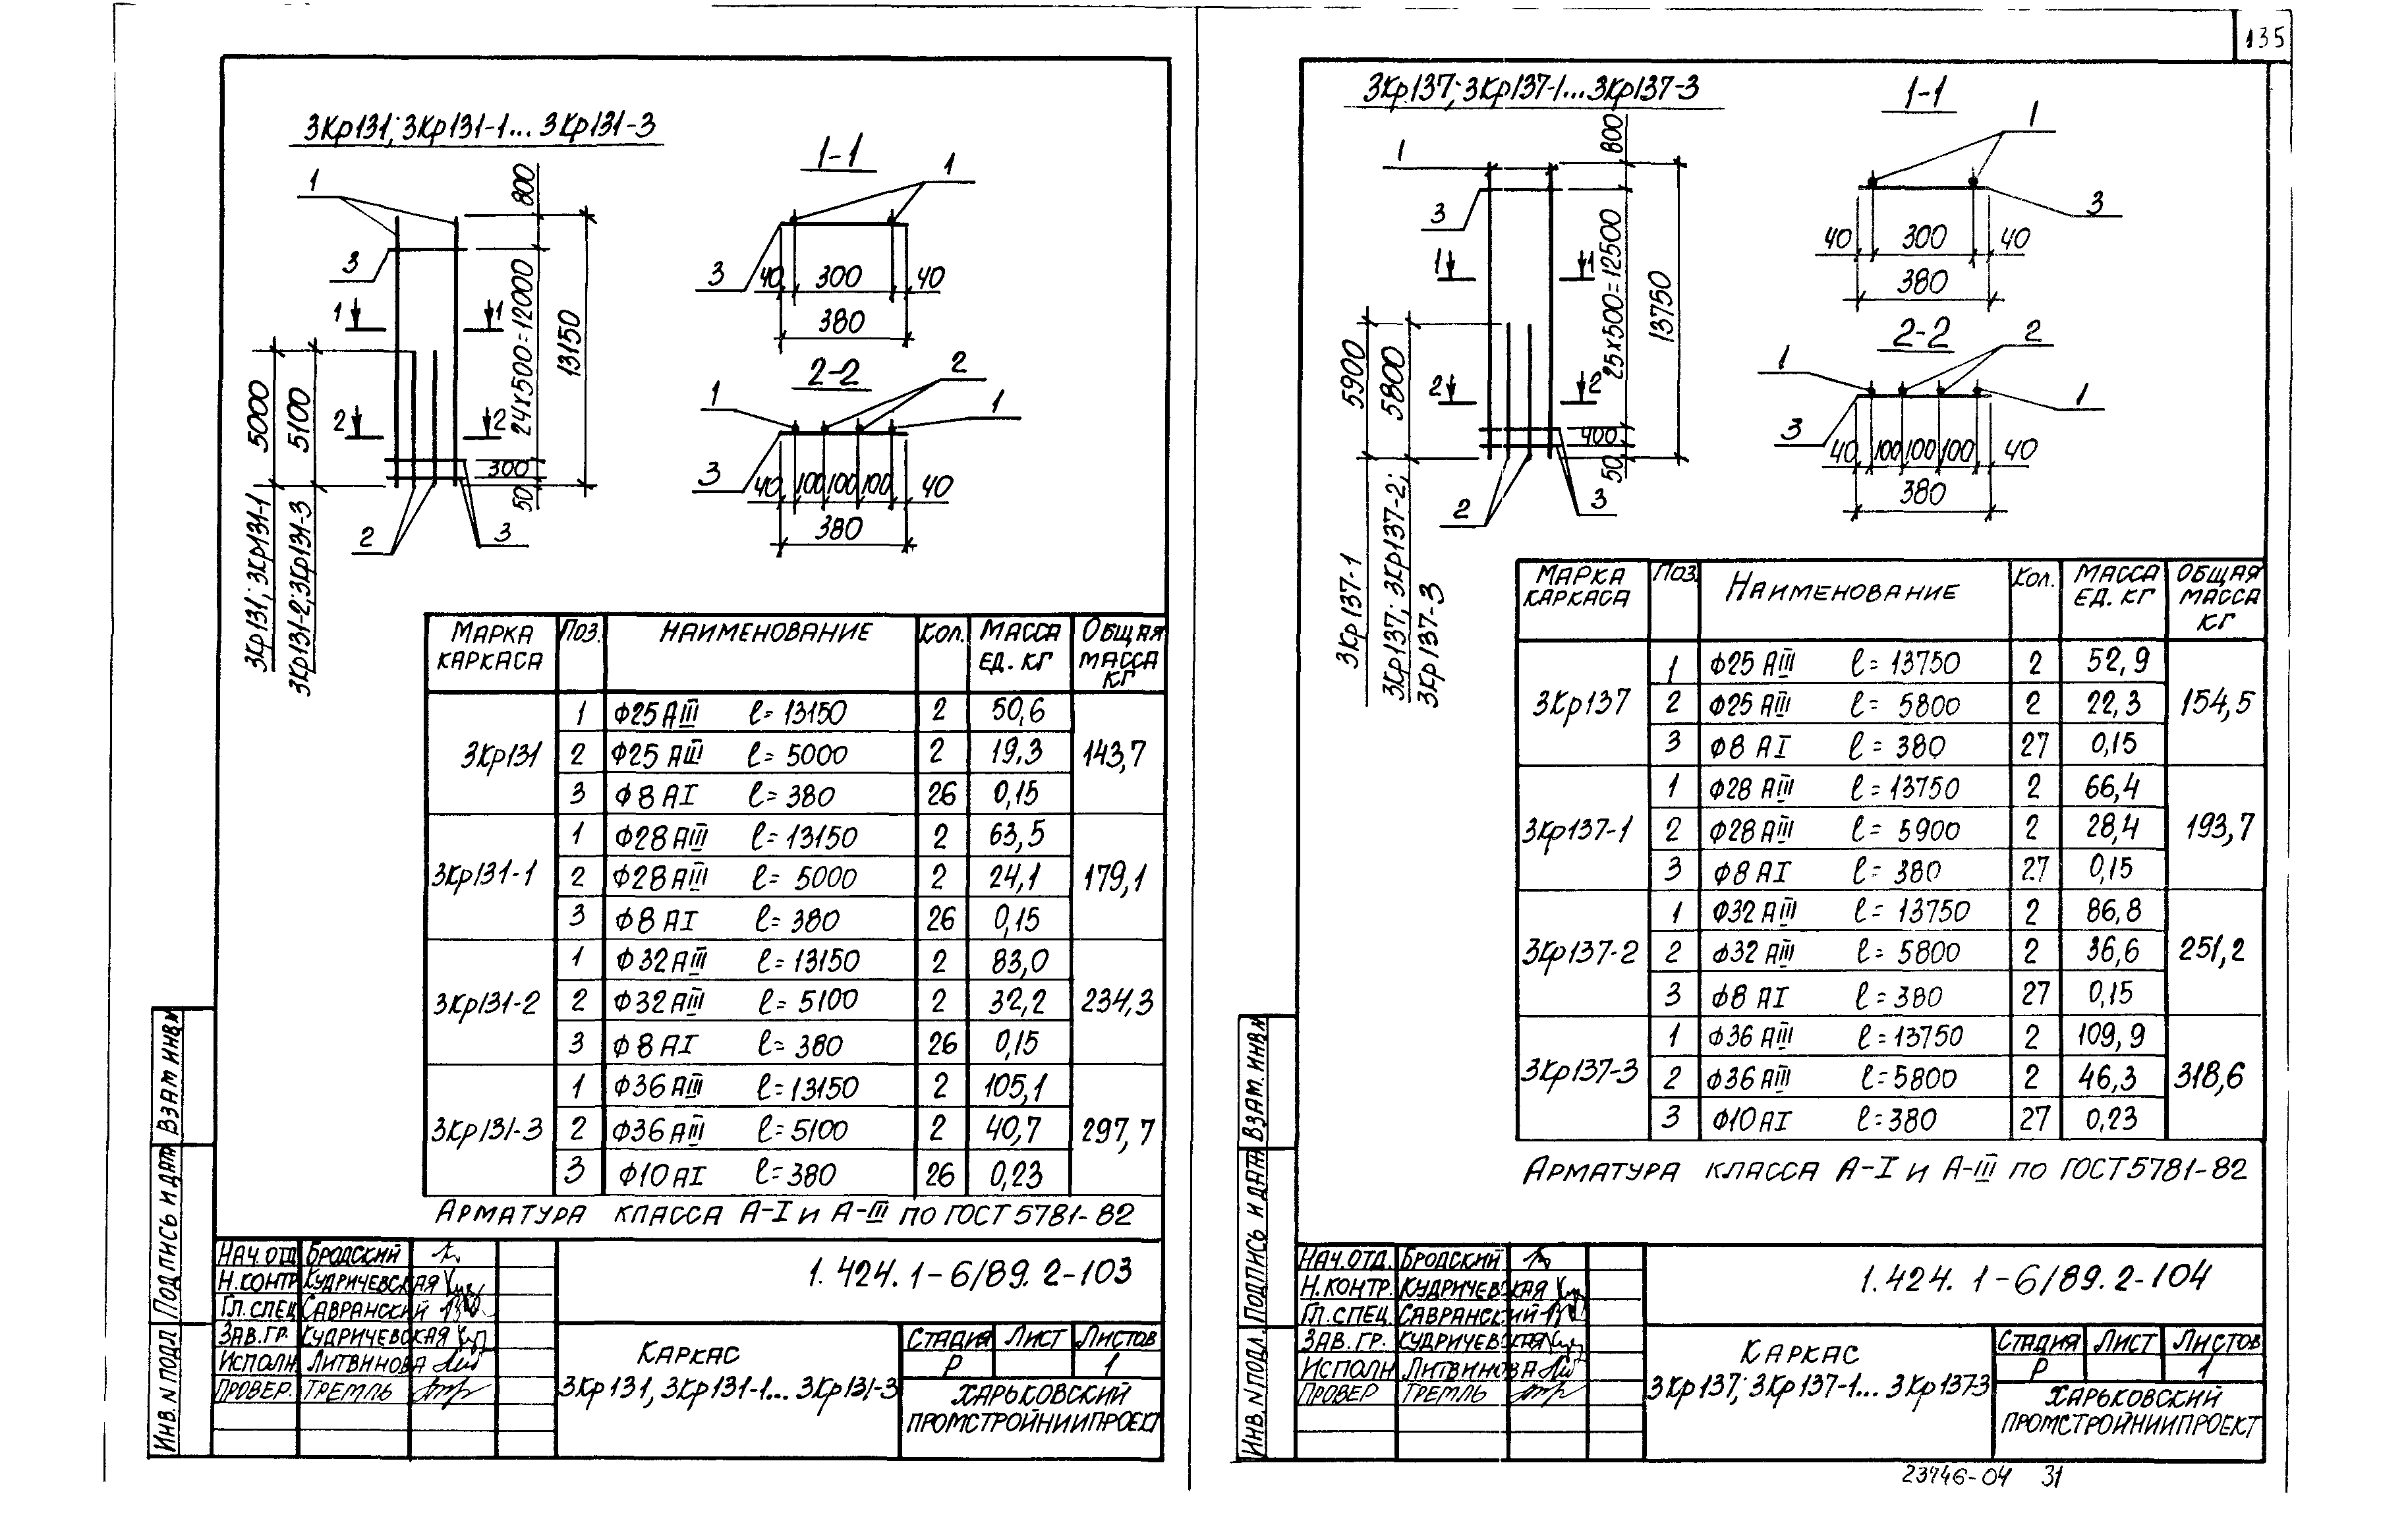 135
3Кр131; 3Кр131-1... 3Кр131-3
1
3
1 1
2 2
2
3
800
24х500=12000
300
50
13150
5000
5100
3Кр131; 3Кр131-1
3Кр131-2; 3Кр131-3
1-1
1
3
40 300 40
380
2-2
1 2 1
3
40 100 100 100 40
380
МАРКА КАРКАСА ПОЗ. НАИМЕНОВАНИЕ КОЛ. МАССА ЕД. КГ ОБЩАЯ МАССА КГ
3Кр131 143,7
1 Ф25 АIII ℓ= 13150 2 50,6
2 Ф25 АIII ℓ= 5000 2 19,3
3 Ф8 АI ℓ= 380 26 0,15
3Кр131-1 179,1
1 Ф28 АIII ℓ= 13150 2 63,5
2 Ф28 АIII ℓ= 5000 2 24,1
3 Ф8 АI ℓ= 380 26 0,15
3Кр131-2 234,3
1 Ф32 АIII ℓ= 13150 2 83,0
2 Ф32 АIII ℓ= 5100 2 32,2
3 Ф8 АI ℓ= 380 26 0,15
3Кр131-3 297,7
1 Ф36 АIII ℓ= 13150 2 105,1
2 Ф36 АIII ℓ= 5100 2 40,7
3 Ф10 АI ℓ= 380 26 0,23
АРМАТУРА КЛАССА А-I И А-III ПО ГОСТ 5781-82
НАЧ.ОТД БРОДСКИЙ
Н.КОНТР КУДРИЧЕВСКАЯ
ГЛ.СПЕЦ САВРАНСКИЙ
ЗАВ.ГР. КУДРИЧЕВСКАЯ
ИСПОЛН ЛИТВИНОВА
ПРОВЕР. ТРЕМЛЬ
1.424.1-6/89.2-103
КАРКАС
3Кр131, 3Кр131-1... 3Кр131-3
СТАДИЯ ЛИСТ ЛИСТОВ
Р 1
ХАРЬКОВСКИЙ
ПРОМСТРОЙНИИПРОЕКТ
ИНВ. N ПОДЛ ПОДПИСЬ И ДАТА ВЗАМ ИНВ.N
3Кр137; 3Кр137-1... 3Кр137-3
1
3
1 1
2 2
2
3
800
25х500=12500
400
50
13750
5900
5800
3Кр137-1
3Кр137; 3Кр137-2;
3Кр137-3
1-1
1
3
40 300 40
380
2-2
1 2 1
3
40 100 100 100 40
380
МАРКА КАРКАСА ПОЗ. НАИМЕНОВАНИЕ КОЛ. МАССА ЕД. КГ ОБЩАЯ МАССА КГ
3Кр137 154,5
1 Ф25 АIII ℓ= 13750 2 52,9
2 Ф25 АIII ℓ= 5800 2 22,3
3 Ф8 АI ℓ= 380 27 0,15
3Кр137-1 193,7
1 Ф28 АIII ℓ= 13750 2 66,4
2 Ф28 АIII ℓ= 5900 2 28,4
3 Ф8 АI ℓ= 380 27 0,15
3Кр137-2 251,2
1 Ф32 АIII ℓ= 13750 2 86,8
2 Ф32 АIII ℓ= 5800 2 36,6
3 Ф8 АI ℓ= 380 27 0,15
3Кр137-3 318,6
1 Ф36 АIII ℓ= 13750 2 109,9
2 Ф36 АIII ℓ= 5800 2 46,3
3 Ф10 АI ℓ= 380 27 0,23
АРМАТУРА КЛАССА А-I И А-III ПО ГОСТ 5781-82
НАЧ.ОТД. БРОДСКИЙ
Н.КОНТР. КУДРИЧЕВСКАЯ
ГЛ.СПЕЦ. САВРАНСКИЙ
ЗАВ.ГР. КУДРИЧЕВСКАЯ
ИСПОЛН ЛИТВИНОВА
ПРОВЕР ТРЕМЛЬ
1.424.1-6/89.2-104
КАРКАС
3Кр137; 3Кр137-1... 3Кр137-3
СТАДИЯ ЛИСТ ЛИСТОВ
Р 1
ХАРЬКОВСКИЙ
ПРОМСТРОЙНИИПРОЕКТ
ИНВ. N ПОДЛ. ПОДПИСЬ И ДАТА ВЗАМ. ИНВ.N
23746-04 31